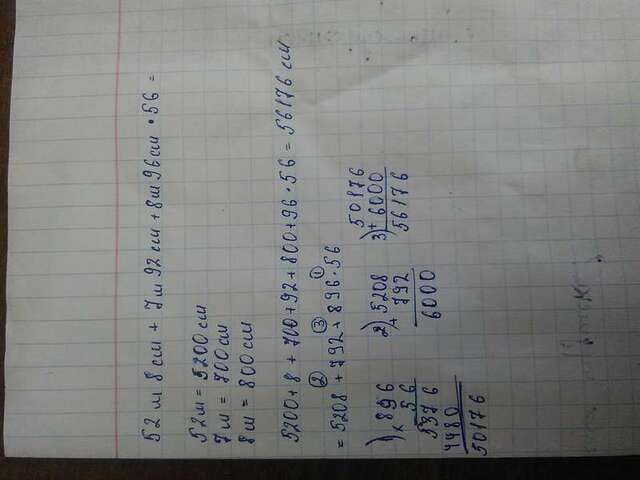 52 м 8 см + 7 м 92 см + 8 м 96 см · 56 =
52 м = 5200 см
7 м = 700 см
8 м = 800 см
5200 + 8 + 700 + 92 + 800 + 96 · 56 = 56176 см
② ③ ①
= 5208 + 792 + 896 · 56
1) × 896
56
5376
4480
50176
2) 5208
+ 792
6000
3) 50176
+ 6000
56176